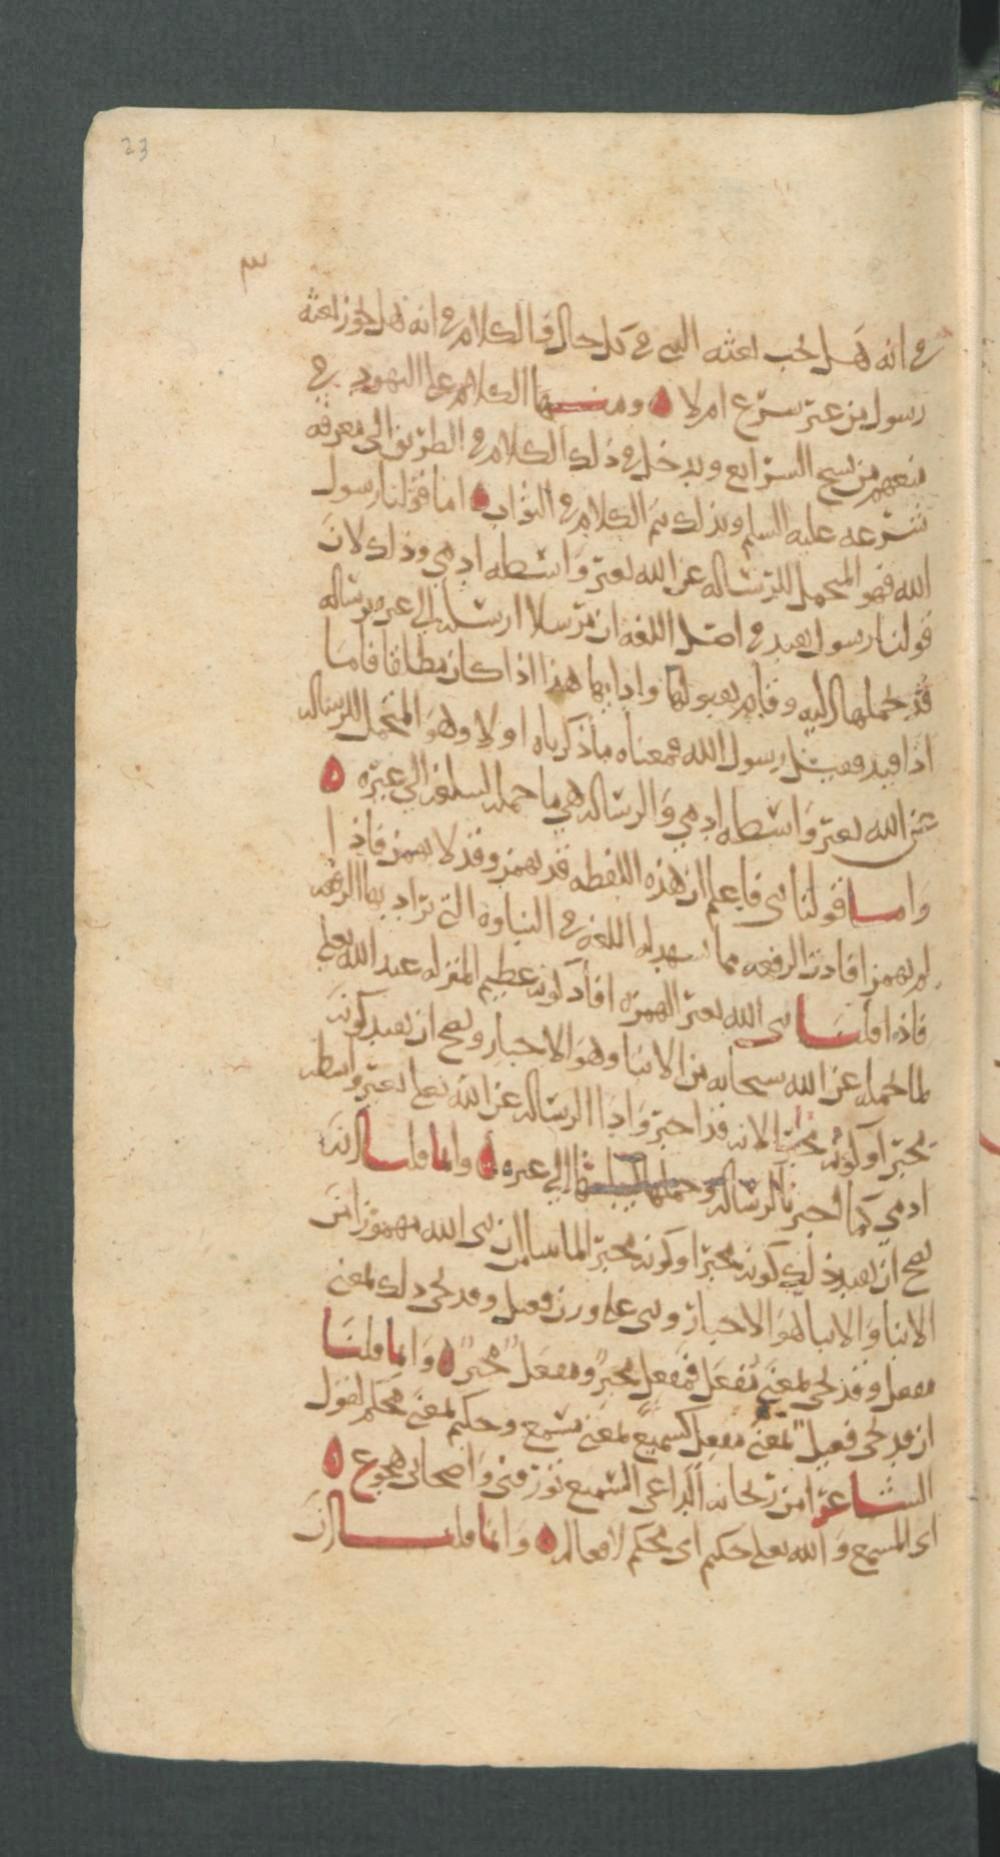 23
٣
في انه هل يجب بعثة النبي في كل حال فالكلام في انه هل يجوز بعثة
رسول من غير شرع ام لا ه ومنها الكلام على اليهود في
منعهم من نسخ الشرايع ويدخل في ذلك الكلام في الطريق الى معرفة
شرعه عليه السلم وبذلك يتم الكلام في النبوات ه اما قولنا رسول
الله فهو المتحمل للرسالة عن الله بغير واسطة ادمي وذلك لان
قولنا رسول يفيد في اصل اللغة ان مرسلا ارسله الى غيره برسالة
قد تحملها اليه وقام بقبولها وادايها هذا اذا كان مطلقا فاما
اذا قيد فقيل رسول الله فمعناه ما ذكرناه اولا وهو المتحمل للرسالة
عن الله بغير واسطة ادمي والرسالة هي ما حمله ليبلغه الى غيره ه
واما قولنا نبي فاعلم ان هذه اللفظة قد تهمز وقد لا تهمز فاذا
لم تهمز افادت الرفعة مما تشهد له اللغة في النباوة التي يراد بها الرفعة
فاذا قلنا نبي الله بغير الهمزة افاد كونه عظيم المنزلة عند الله تعلى
لما تحمله عن الله سبحانه من الانبا وهو الاخبار ويصح ان يفيد كونه
مخبرا او كونه مخبرا لانه قد اخبر وادا الرسالة عن الله تعلى بغير واسطة
ادمي كما اخبر بالرسالة وحملها ليبلغها الى غيره ه وانما قلنا انه
يصح ان يفيد ذلك كونه مخبرا او كونه مخبر لما بينا ان نبي الله مهموز من
الانبا والانبا هو الاخبار ونبي على وزن فعيل وقد يجي ذلك بمعنى
مفعل وقد يجي بمعنى مُفعَل فمفعل مخبِر ومفعل مخبَر ه وانما قلنا
ان قد يجي فعيل بمعنى مفعل كسميع بمعنى مسمع وحكيم بمعنى محكم لقول
الشاعر امن ريحانة الداعي السميع يؤرقني واصحابي هجوع ه
اي المسمع والله تعلى حكيم اي محكم لافعاله ه وانما قلنا ان